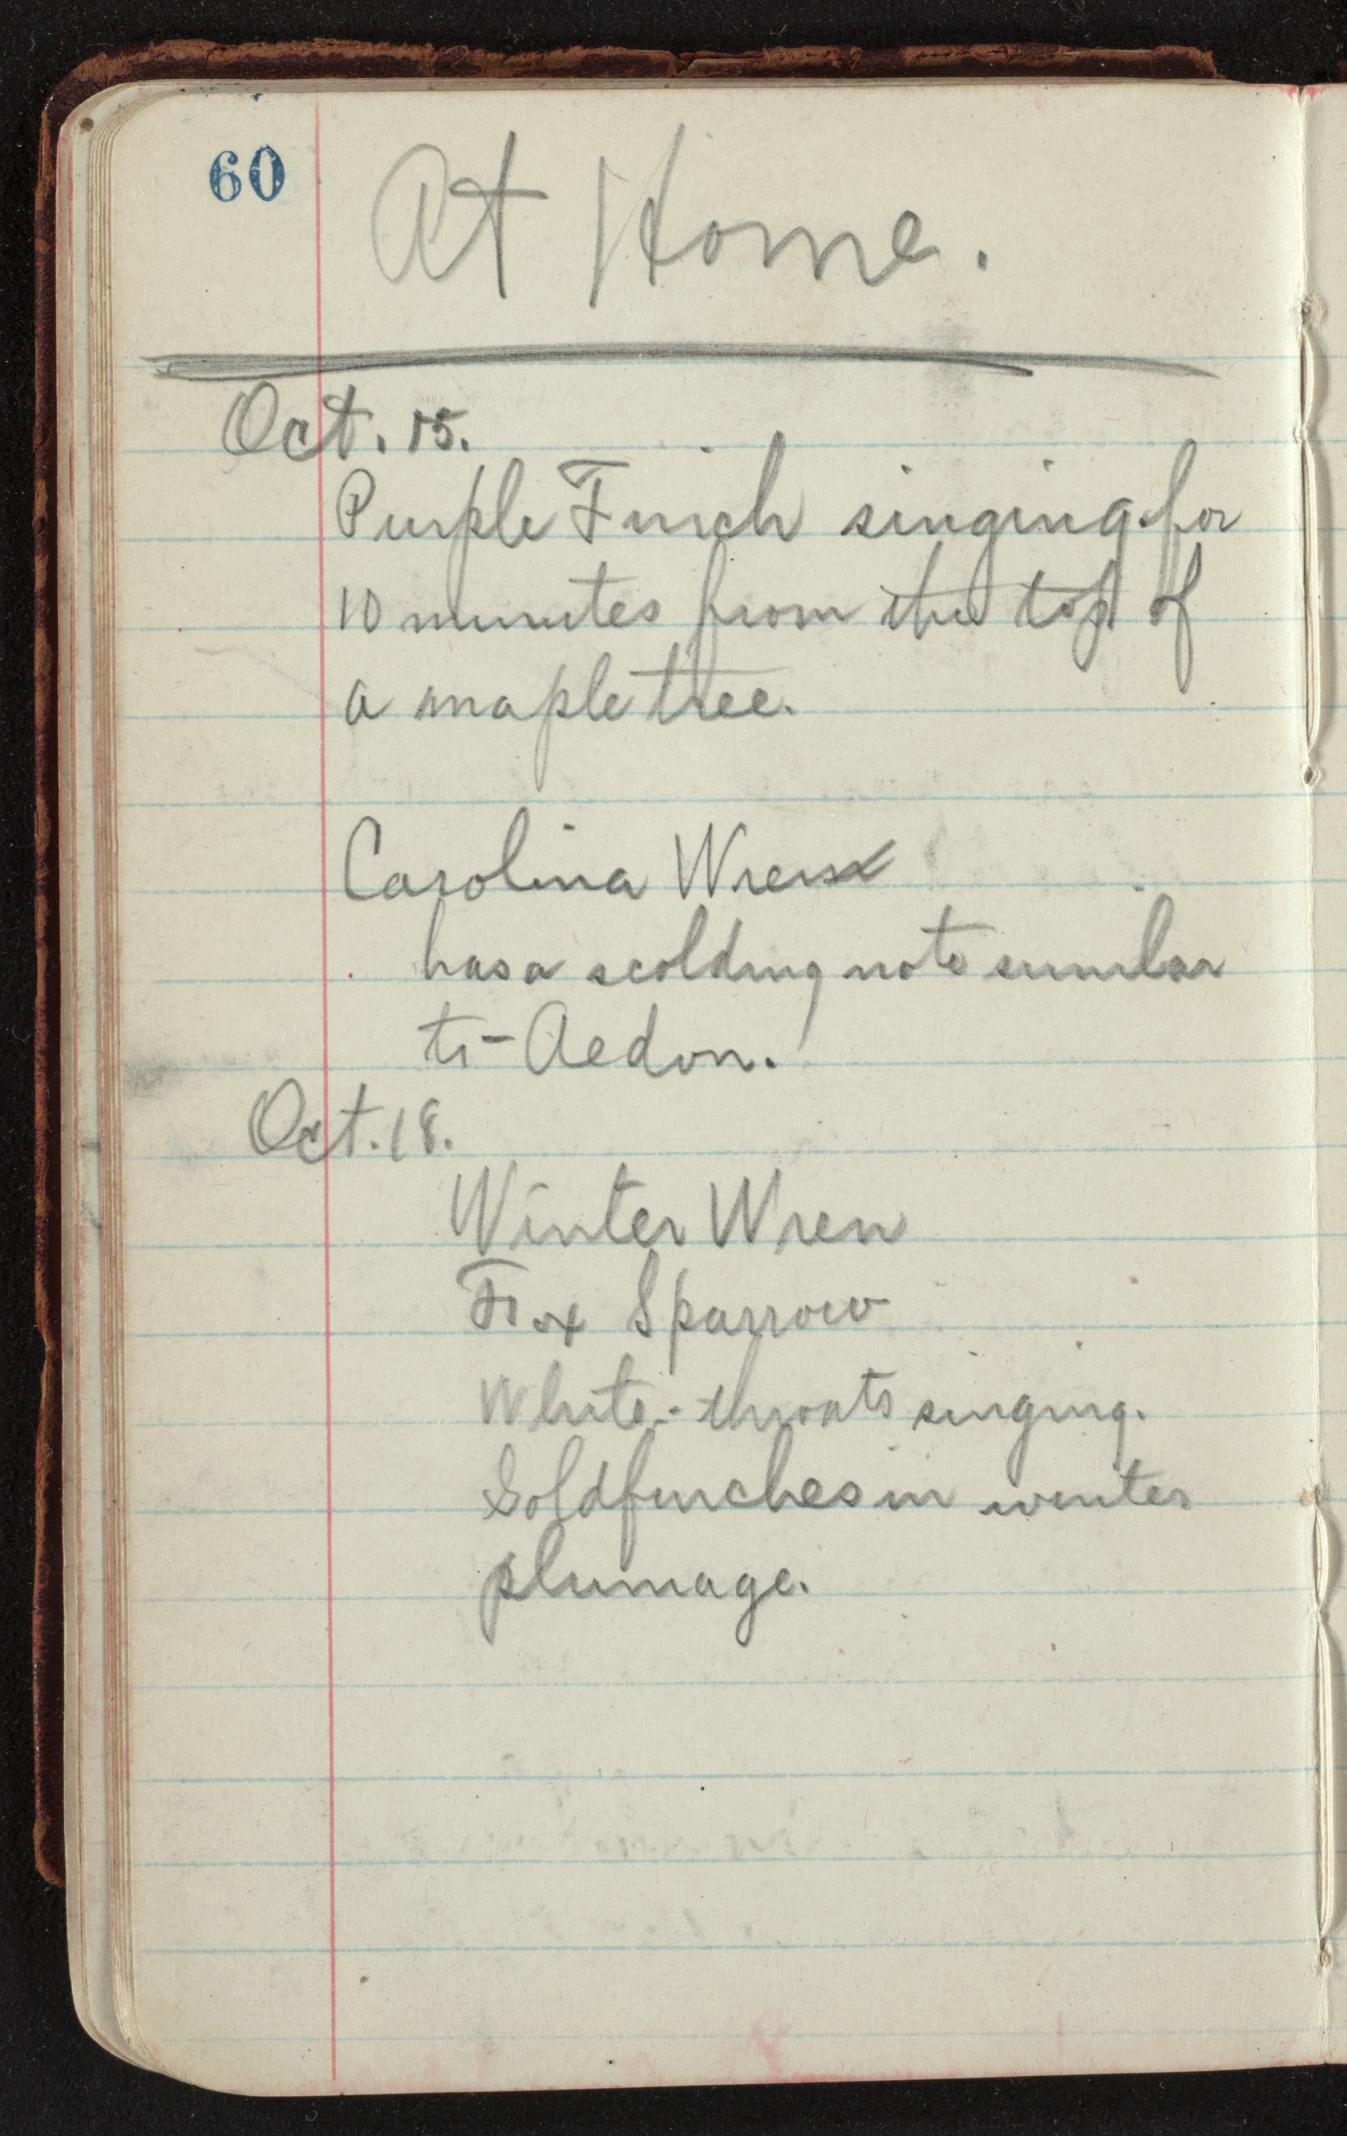 60
At Home.
Oct. 15.
Purple Finch singing for
10 minutes from the top of
a maple tree.
Carolina Wren
has a scolding note similar
to - Aedon.
Oct. 18.
Winter Wren
Fox Sparrow
White-throats singing.
Goldfinches in winter
plumage.